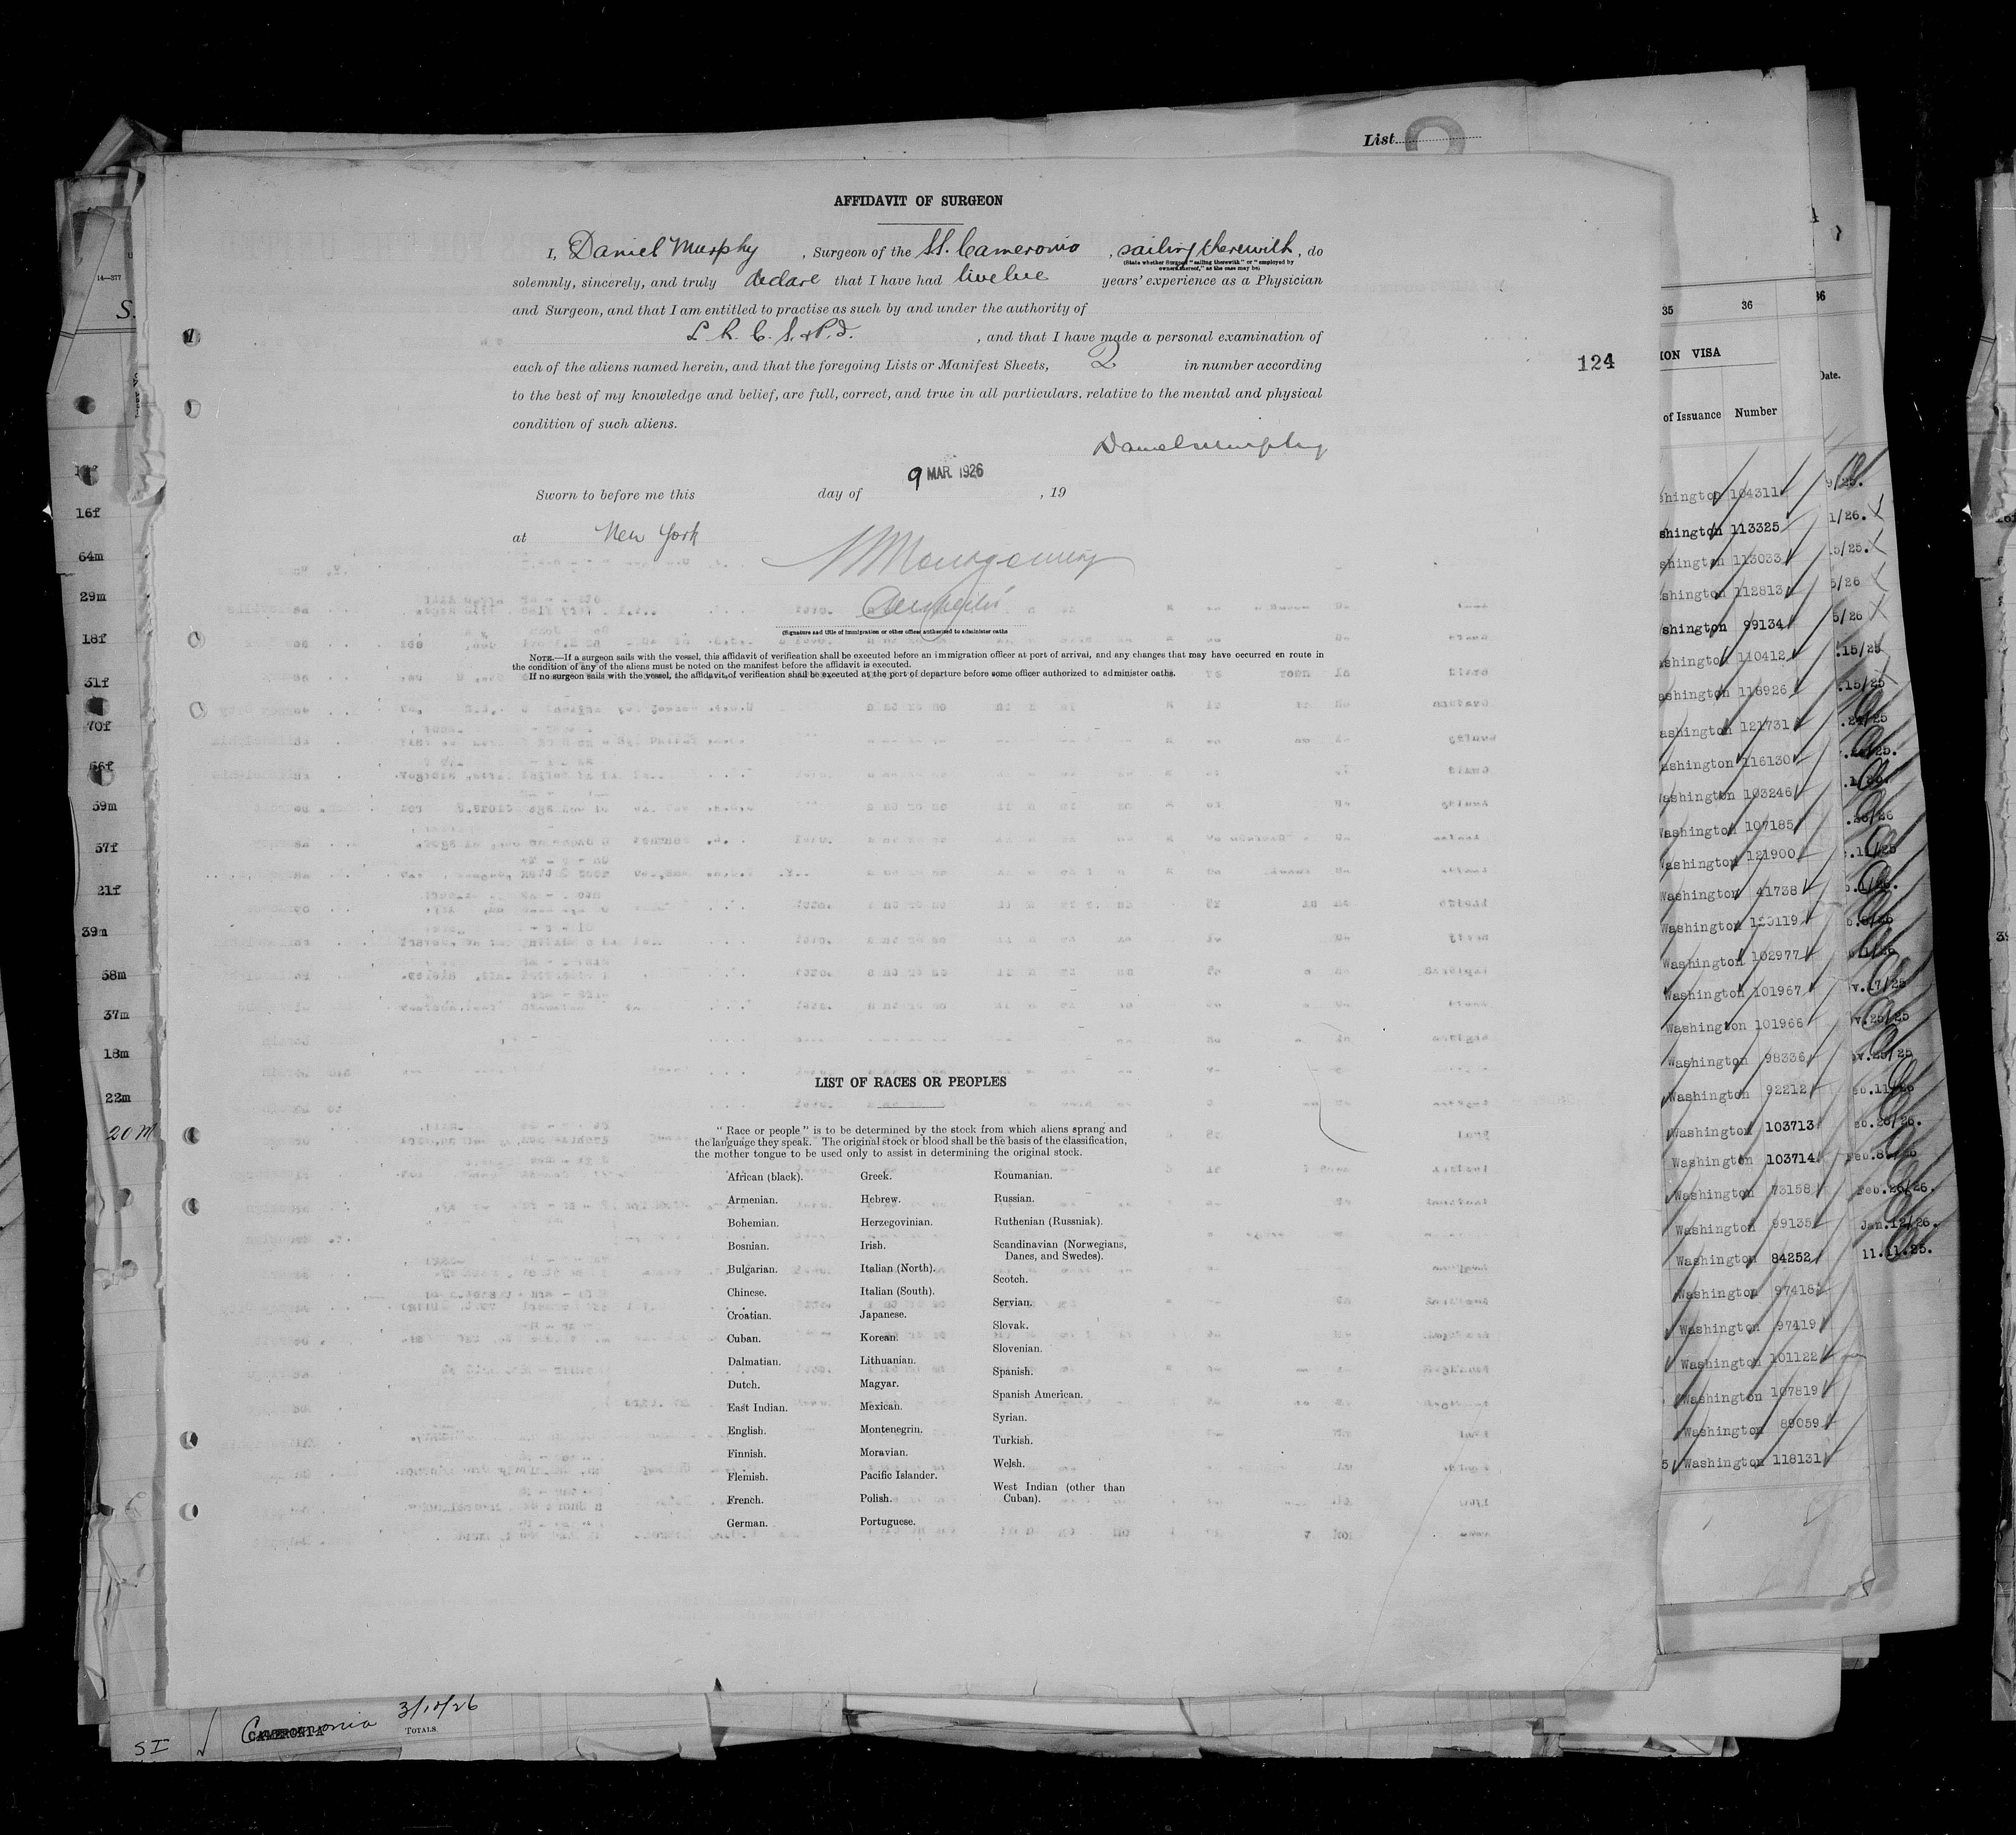 List
AFFIDAVIT OF SURGEON
I, Daniel Murphy, Surgeon of the S.S. Cameronia, sailing therewith, do
(State whether Surgeon "sailing therewith" or "employed by
owners thereof," as the case may be)
solemnly, sincerely, and truly declare that I have had twelve years' experience as a Physician
and Surgeon, and that I am entitled to practise as such by and under the authority of
L. R. C. S. & P. I., and that I have made a personal examination of
each of the aliens named herein, and that the foregoing Lists or Manifest Sheets, 2 in number according
to the best of my knowledge and belief, are full, correct, and true in all particulars. relative to the mental and physical
condition of such aliens.
Daniel Murphy
9 MAR 1926
Sworn to before me this day of , 19
at New York
Montgomery
(Signature and title of immigration or other officer authorized to administer oaths
NOTE.—If a surgeon sails with the vessel, this affidavit of verification shall be executed before an immigration officer at port of arrival, and any changes that may have occurred en route in
the condition of any of the aliens must be noted on the manifest before the affidavit is executed.
If no surgeon sails with the vessel, the affidavit of verification shall be executed at the port of departure before some officer authorized to administer oaths.
LIST OF RACES OR PEOPLES
"Race or people" is to be determined by the stock from which aliens sprang and
the language they speak. The original stock or blood shall be the basis of the classification,
the mother tongue to be used only to assist in determining the original stock.
African (black).
Armenian.
Bohemian.
Bosnian.
Bulgarian.
Chinese.
Croatian.
Cuban.
Dalmatian.
Dutch.
East Indian.
English.
Finnish.
Flemish.
French.
German.
Greek.
Hebrew.
Herzegovinian.
Irish.
Italian (North).
Italian (South).
Japanese.
Korean.
Lithuanian.
Magyar.
Mexican.
Montenegrin.
Moravian.
Pacific Islander.
Polish.
Portuguese.
Roumanian.
Russian.
Ruthenian (Russniak).
Scandinavian (Norwegians,
Danes, and Swedes).
Scotch.
Servian.
Slovak.
Slovenian.
Spanish.
Spanish American.
Syrian.
Turkish.
Welsh.
West Indian (other than
Cuban).
124
14—377
S.
16f
64m
29m
18f
31f
70f
56f
59m
57f
21f
39m
58m
37m
18m
22m
20 M
35 36 36
ION VISA
Date.
of Issuance Number
shington 104311
shington 113325
shington 113033
shington 112813
shington 99134
ashington 110412
ashington 118926
ashington 121731
ashington 116130
ashington 103246
Washington 107185
Washington 121900
Washington 41738
Washington 120119
Washington 102977
Washington 101967
Washington 101966
Washington 98336
Washington 92212
Washington 103713
Washington 103714
Washington 73158
Washington 99135
Washington 84252
Washington 97418
Washington 97419
Washington 101122
Washington 107819
Washington 89059
5 Washington 118131
9/25.
1/26.
5/25.
5/26
5/26
.15/25
.15/25
.24/25
.11/25
v.17/25
v.25/25
Feb.26/26.
Jan.12/26.
11.11.25.
SI
Cameronia
CAMERONIA
TOTALS